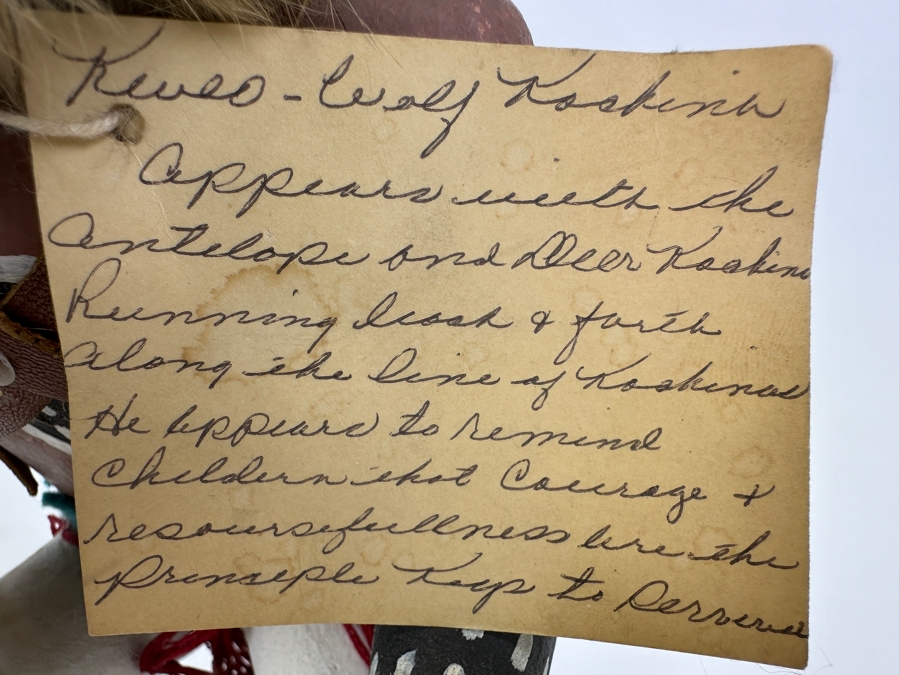 Kweo - Wolf Kachina
Appears with the
Antelope and Deer Kachina
Running back & forth
Along the line of Kachinas
He Appears to remind
Childern that Courage &
resoursefullness are the
Principle Keys to Survival